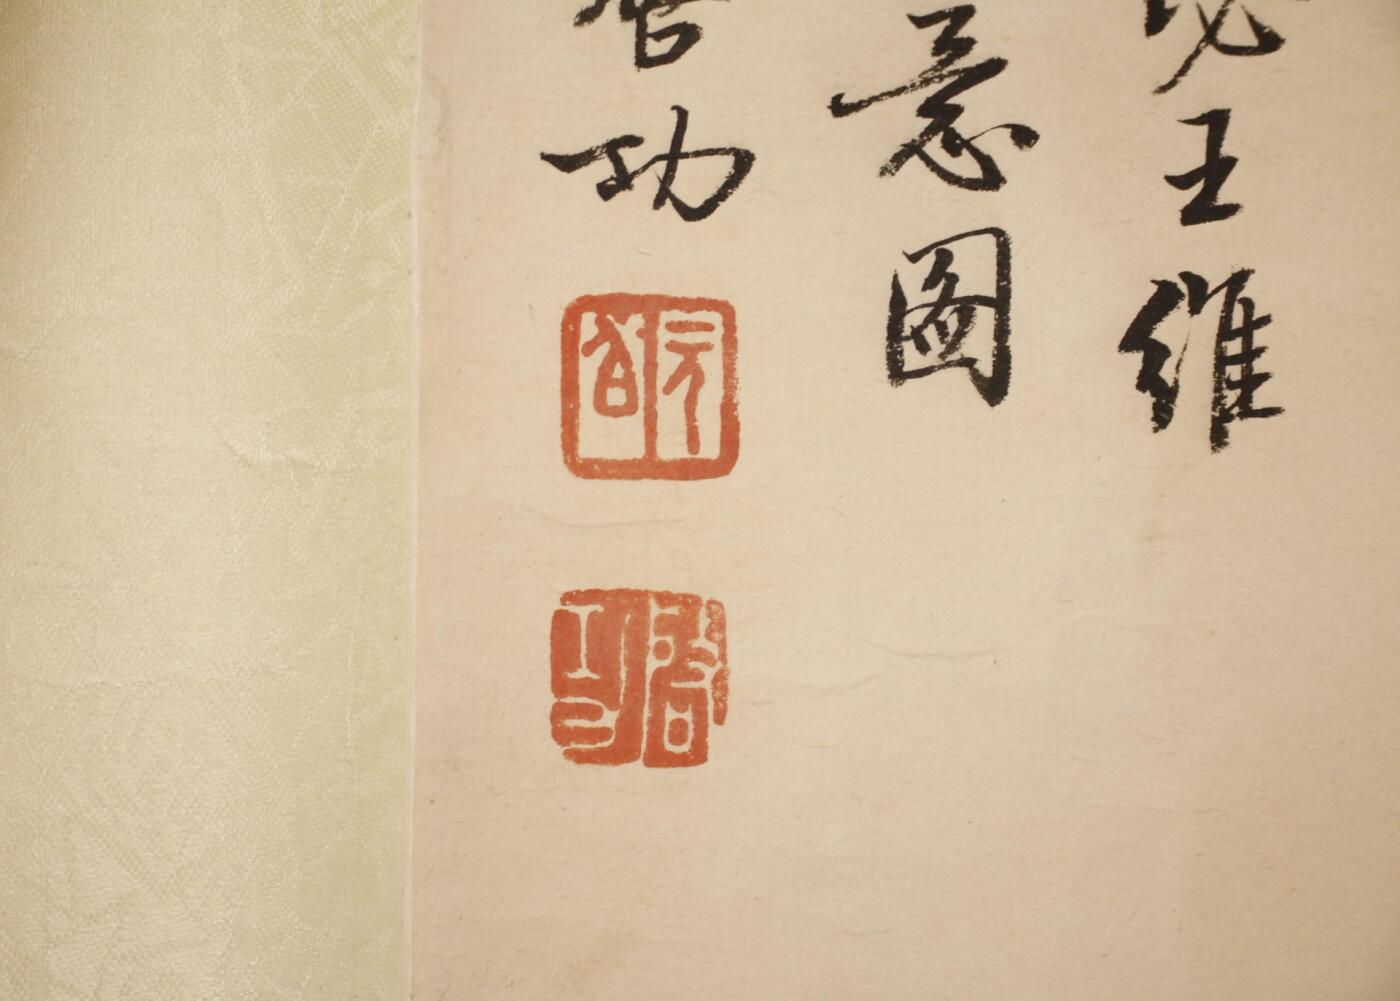 王維
意圖
啓功
元白
啓功